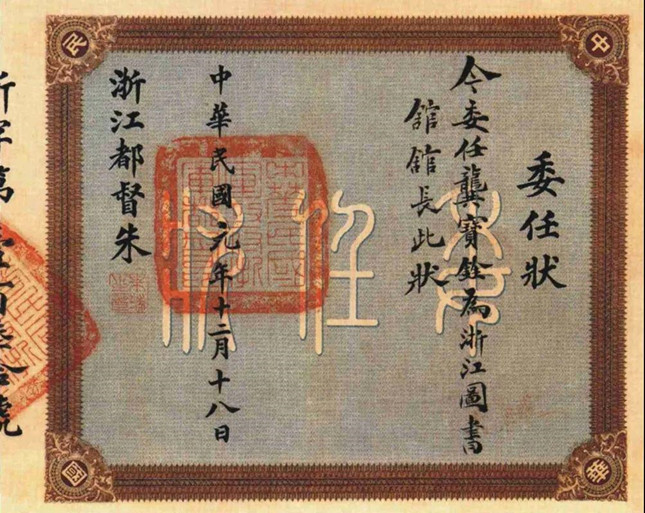 委任狀
今委任龔寶銓為浙江圖書
舘舘長此狀
中華民國元年十二月十八日
浙江都督朱
委任狀
中
華
民
國